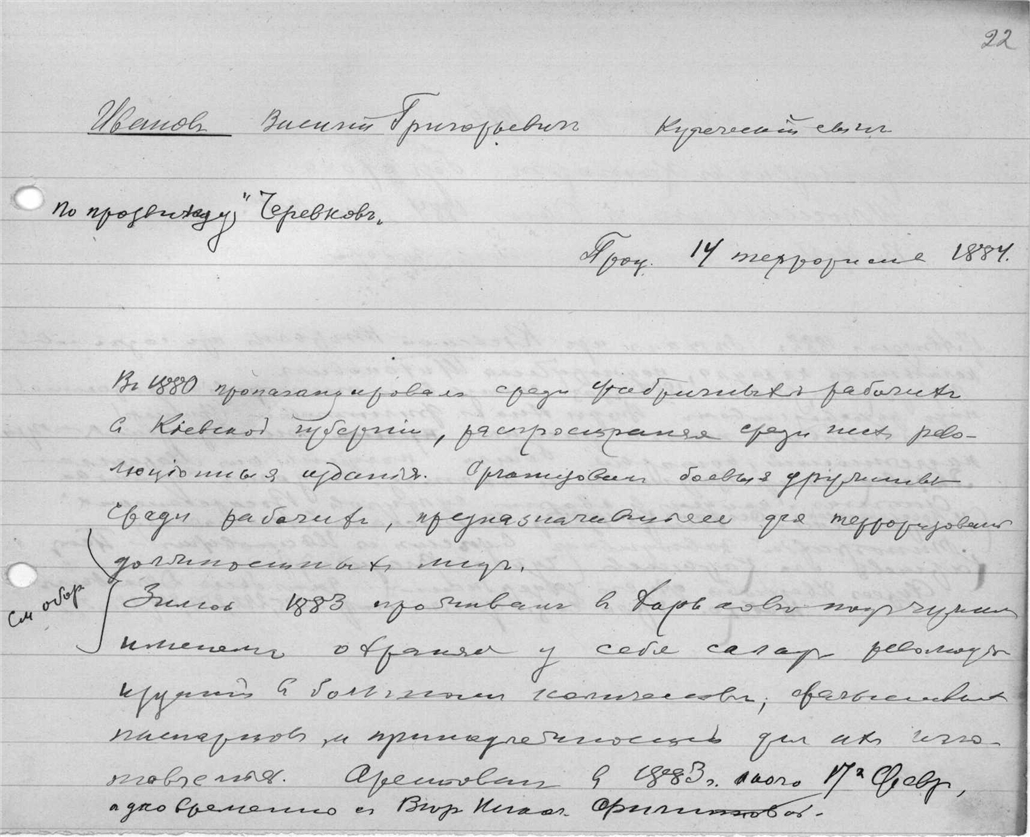 22
Ивановъ Василий Григорьевичъ Купеческий сынъ
По прозвищу „Черевковъ“
Проц. 14 террористовъ 1884.
Въ 1880 пропагандировалъ среди фабричныхъ рабочихъ
в Кіевской губерніи, распространяя среди нихъ рево-
люціонныя изданія. Организовалъ боевыя дружины
среди рабочихъ, предназначавшіяся для терроризованія
должностныхъ лицъ.
См обор
Зимой 1883 проживалъ в Харьковѣ подъ чужимъ
именемъ охраняя у себя складъ революц
изданій в большомъ количествѣ, фальшивыхъ
паспортовъ и принадлежностей для ихъ изго-
товленія. Арестованъ в 1883 г. 17го Февр,
одновременно съ